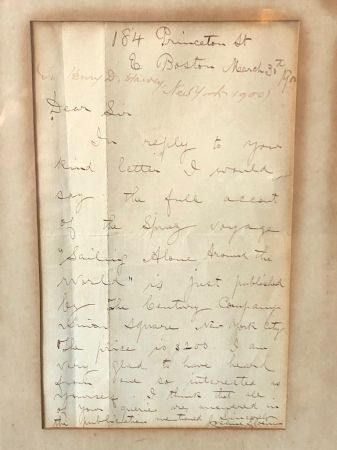 184 Princeton St
E Boston March 3
Henry D.
New York 1900
Dear Sir
In reply to your
kind letter I would
say the full account
of the Spray voyage
"Sailing Alone Around the
World" is just published
by the Century Company
Union Square New York City
The price is $2.00 I am
very glad to have heard
from one so interested as
yourself. I think that all
of your querie are answered in
the publication mentioned Sincerely